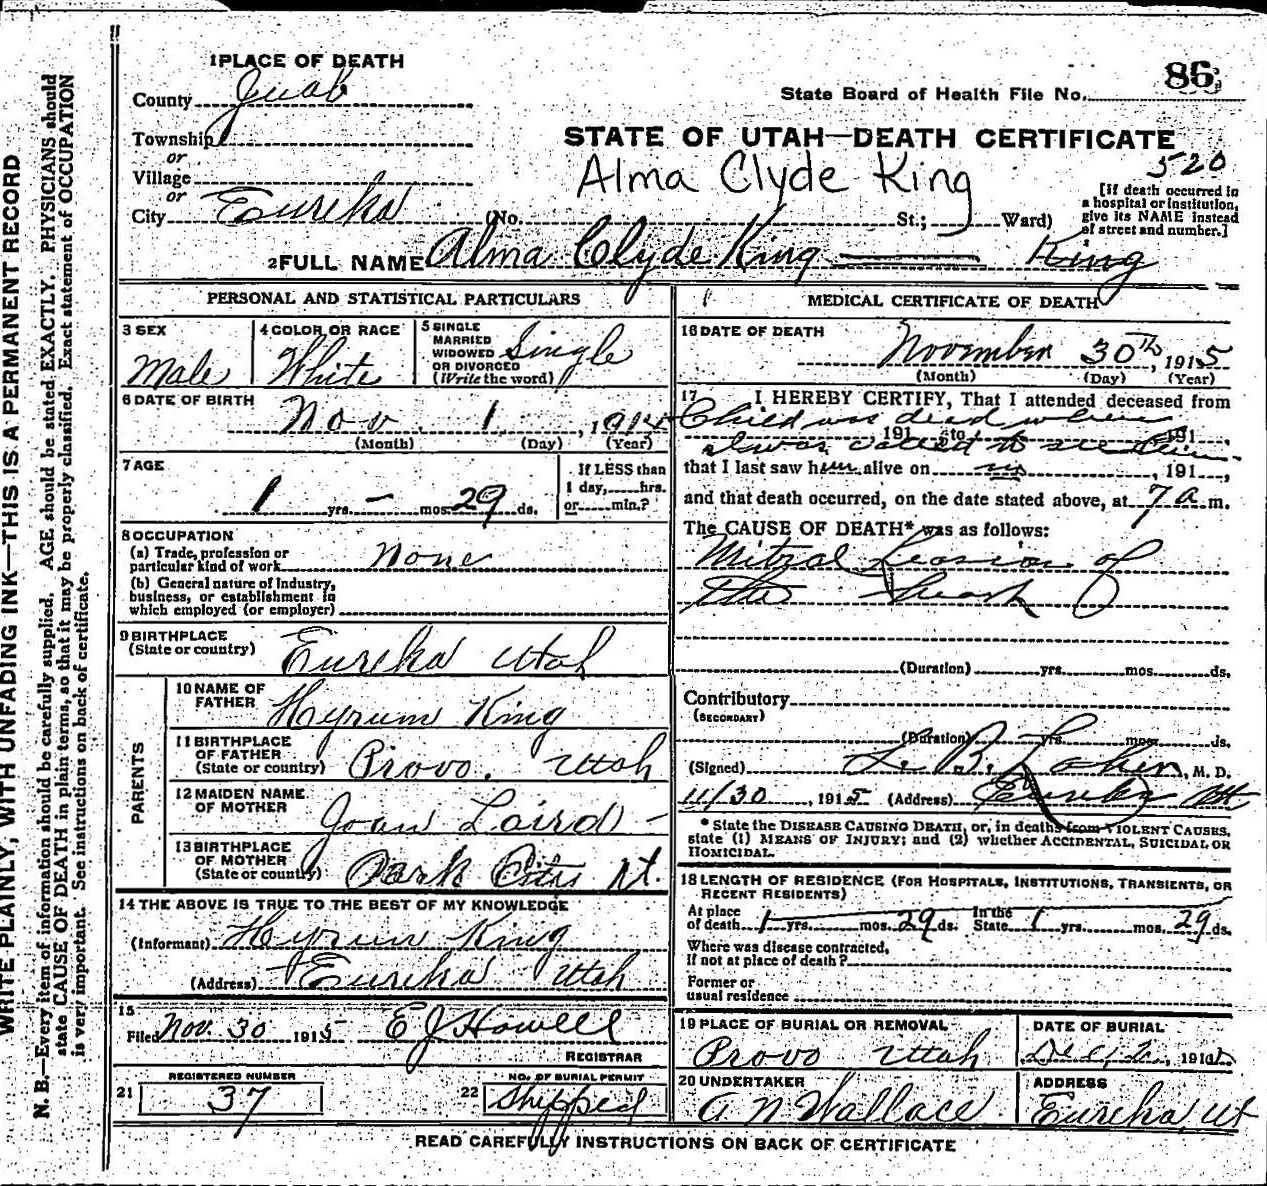 WRITE PLAINLY, WITH UNFADING INK—THIS IS A PERMANENT RECORD
N. B.—Every item of information should be carefully supplied. AGE should be stated EXACTLY. PHYSICIANS should
state CAUSE OF DEATH in plain terms, so that it may be properly classified. Exact statement of OCCUPATION
is very important. See instructions on back of certificate.
1 PLACE OF DEATH
County Juab
Township
or
Village
or
City Eureka
State Board of Health File No. 86
STATE OF UTAH—DEATH CERTIFICATE
Alma Clyde King
520
(No. St.; Ward)
[If death occurred in
a hospital or institution,
give its NAME instead
of street and number.]
2 FULL NAME Alma Clyde King King
PERSONAL AND STATISTICAL PARTICULARS
3 SEX
Male
4 COLOR OR RACE
White
5 SINGLE
MARRIED
WIDOWED
OR DIVORCED
(Write the word)
Single
6 DATE OF BIRTH
Nov. 1, 1914
(Month) (Day) (Year)
7 AGE
1 yrs. – mos. 29 ds.
If LESS than
1 day, hrs.
or min.?
8 OCCUPATION
(a) Trade, profession or
particular kind of work None
(b) General nature of industry,
business, or establishment in
which employed (or employer)
9 BIRTHPLACE
(State or country) Eureka Utah
PARENTS
10 NAME OF
FATHER Hyrum King
11 BIRTHPLACE
OF FATHER
(State or country) Provo. Utah
12 MAIDEN NAME
OF MOTHER Joan Laird
13 BIRTHPLACE
OF MOTHER
(State or country) Park City Ut.
14 THE ABOVE IS TRUE TO THE BEST OF MY KNOWLEDGE
(Informant) Hyrum King
(Address) Eureka Utah
15
Filed Nov. 30 1915 E J Howell
REGISTRAR
21 REGISTERED NUMBER
37
22 NO. OF BURIAL PERMIT
Shipped
MEDICAL CERTIFICATE OF DEATH
16 DATE OF DEATH
November 30th, 1915
(Month) (Day) (Year)
17 I HEREBY CERTIFY, That I attended deceased from
Child was dead when
191 to 191
I was called to see him.
that I last saw him alive on , 191 ,
and that death occurred, on the date stated above, at 7 a m.
The CAUSE OF DEATH* was as follows:
Mitral Leasion of
the Heart
(Duration) yrs. mos. ds.
Contributory
(SECONDARY)
(Duration) yrs. mos. ds.
(Signed) , M. D.
11/30, 1915 (Address) Eureka Ut
* State the DISEASE CAUSING DEATH, or, in deaths from VIOLENT CAUSES,
state (1) MEANS OF INJURY; and (2) whether ACCIDENTAL, SUICIDAL OR
HOMICIDAL.
18 LENGTH OF RESIDENCE (FOR HOSPITALS, INSTITUTIONS, TRANSIENTS, OR
RECENT RESIDENTS)
At place
of death 1 yrs. mos. 29 ds. In the
State 1 yrs. mos. 29 ds.
Where was disease contracted,
if not at place of death?
Former or
usual residence
19 PLACE OF BURIAL OR REMOVAL
Provo Utah
DATE OF BURIAL
Dec. 2, 1915
20 UNDERTAKER
A N Wallace
ADDRESS
Eureka, Ut
READ CAREFULLY INSTRUCTIONS ON BACK OF CERTIFICATE